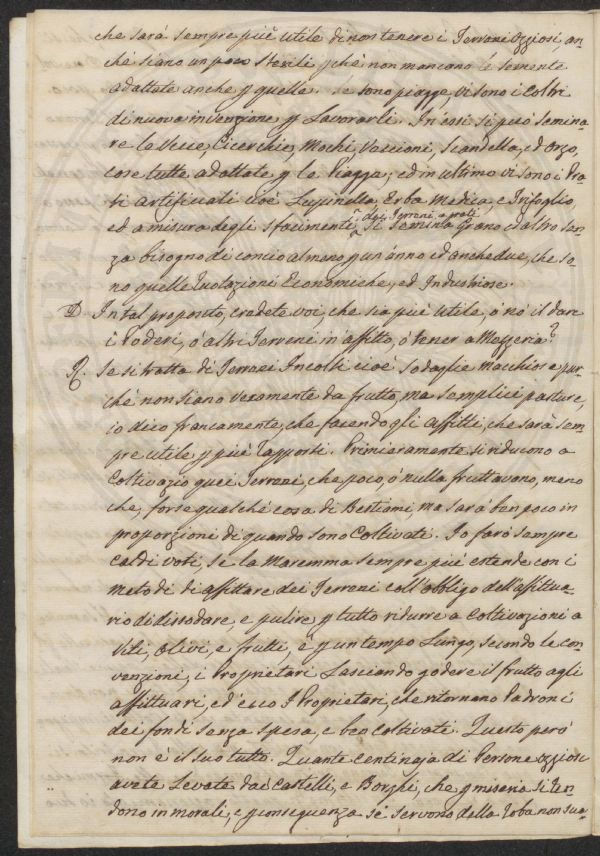 che sarà sempre più utile di non tenere i Terreni Ozziosi, an-
chè siano un poco sterili, p̱chè non mancano le semente
adattate anche p̱ quelle. se sono piagge, vi sono i Coltri
di nuova invenzione p̱ Lavorarli. In essi si può semina-
re la Vecce, Cicerchie, Mochi, Vaccioni, Scandella, ed Orzo,
cose tutte adattate p̱ la Piaggia; ed in ultimo vi sono i Pra-
ti artificiati cioè Lupinella, Erba Medica, e Trifoglio,
ed a misura degli sfacimenti dei Terreni a prati si semina Grano ed altro sen-
za bisogno di concio almeno p̱ un'anno ed anche due, che so-
no quelle Ruotazioni Economiche, ed Industriose.
D. In tal proposito, credete voi, che sia più utile, ò nò il dare
i Poderi, ò altri Terreni in affitto, ò tener a Mezzeria?
R. Se si tratta di Terreni Incolti cioè sodaglie macchiose pur-
chè non siano veramente da frutto, ma semplici pasture,
io dico francamente, che facendo gli affitti, che sarà sem-
pre utile p̱ più rapporti. Primieramente si riducono a
Coltivazio quei Terreni, che poco, ò nulla fruttavano, meno
che, forse qualchè cosa di Bestiami, ma sarà ben poco in
proporzioni di quando sono Coltivati. Io farò sempre
caldi voti, se la Maremma sempre più estende con i
metodi di affittare dei Terreni coll'obbligo dell'affittua-
rio di dissodare, e pulire p̱ tutto ridurre a Coltivazioni a
Viti, Olivi, e frutti, e p̱ un tempo Lungo, secondo le con-
venzioni, i Proprietari Lasciando godere il frutto agli
affittuari, ed ecco I Proprietari, che ritornano Padroni
dei fondi senza spesa, e ben coltivati. Questo però
non è il suo tutto. Quante centinaja di Persone Ozziose
avete Levate dai Castelli, e Borghi, che p̱ miseria si ren-
dono immorali, e p̱ conseguenza si servono della roba non sua